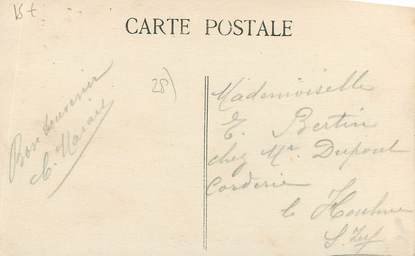 15 €
CARTE POSTALE
25)
Bon souvenir
Mademoiselle
E. Bertin
chez Mr Dupont
Corderie
le Houlme
S. Inf